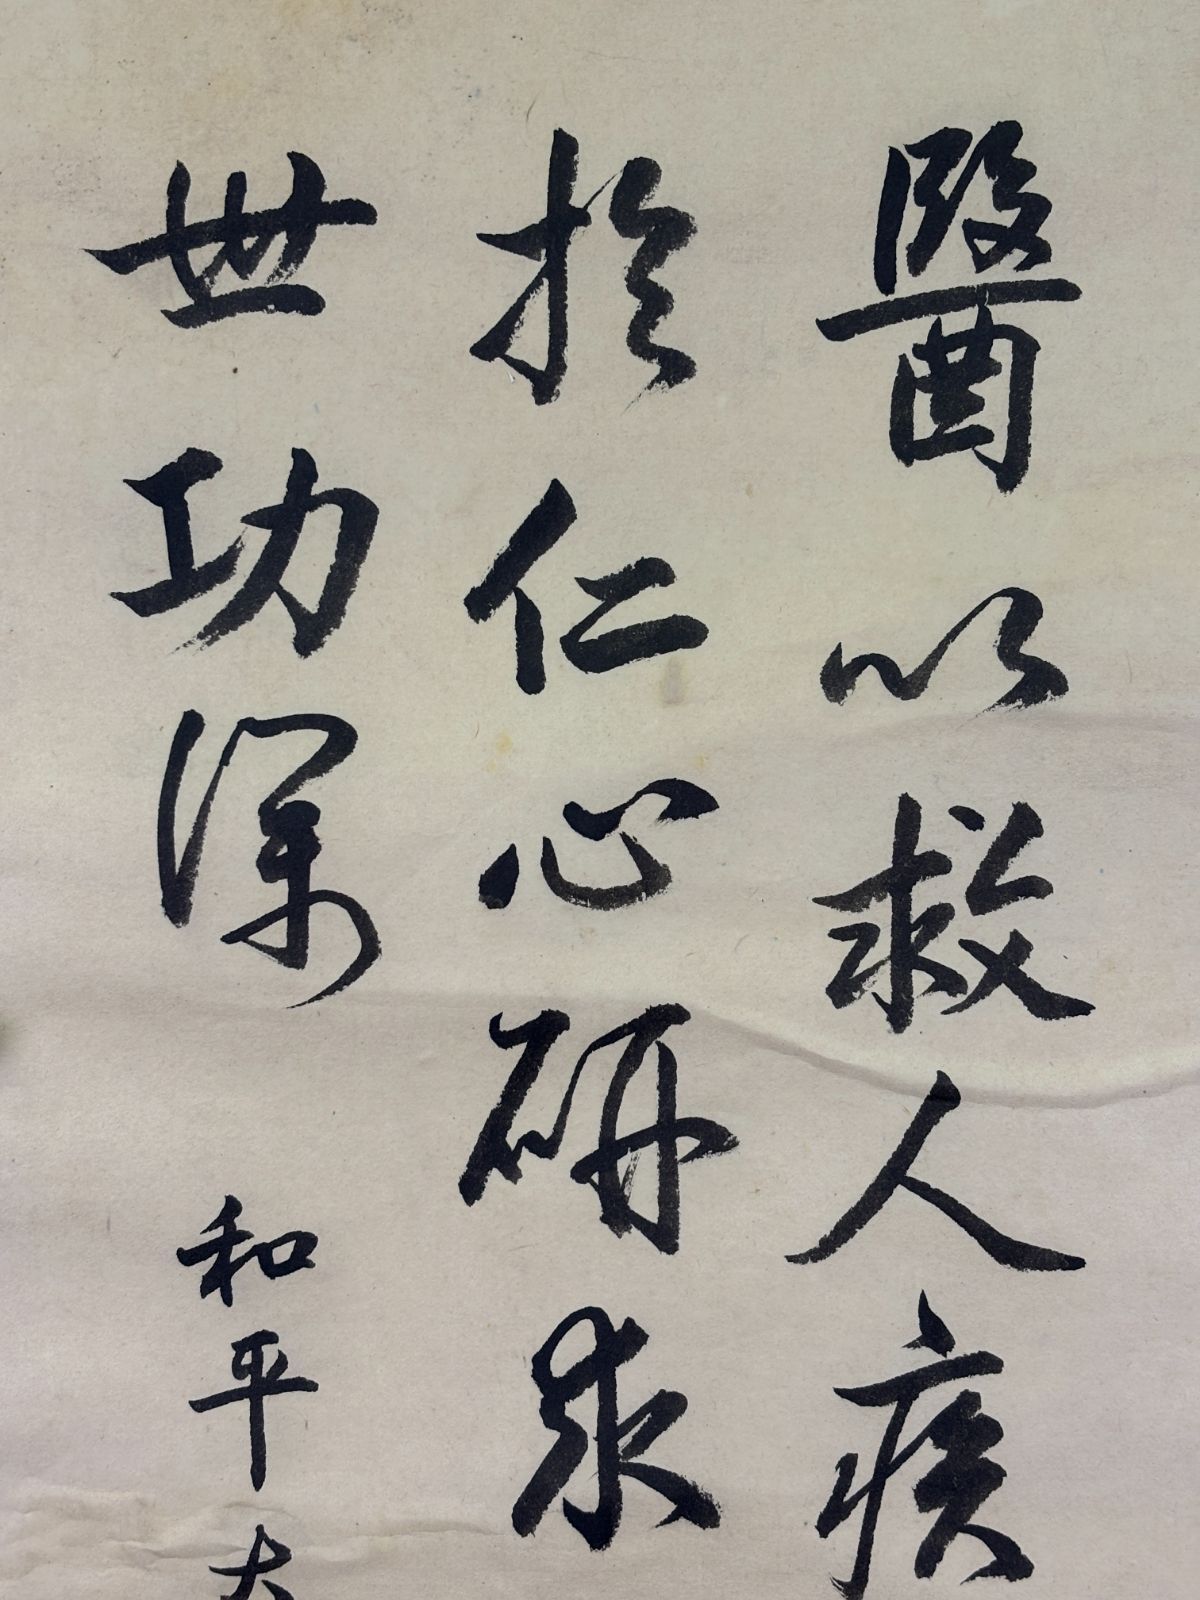 醫以救人疾
於仁心研求
世功深
和平大